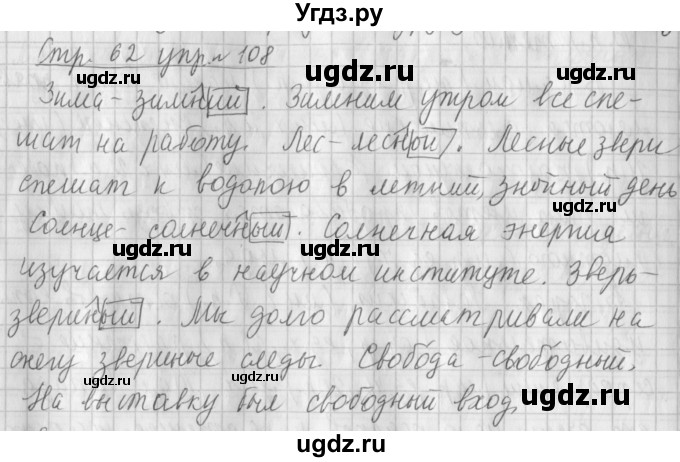 Угдз.ру
Стр. 62 упр. 108
Зима - зимний. Зимним утром все спе-
шат на работу. Лес - лесной. Лесные звери
спешат к водопою в летний, знойный день
Солнце - солнечный. Солнечная энергия
изучается в научном институте. Зверь -
звериный. Мы долго рассматривали на
снегу звериные следы. Свобода - свободный.
На выставку был свободный вход.
ugdz.ru